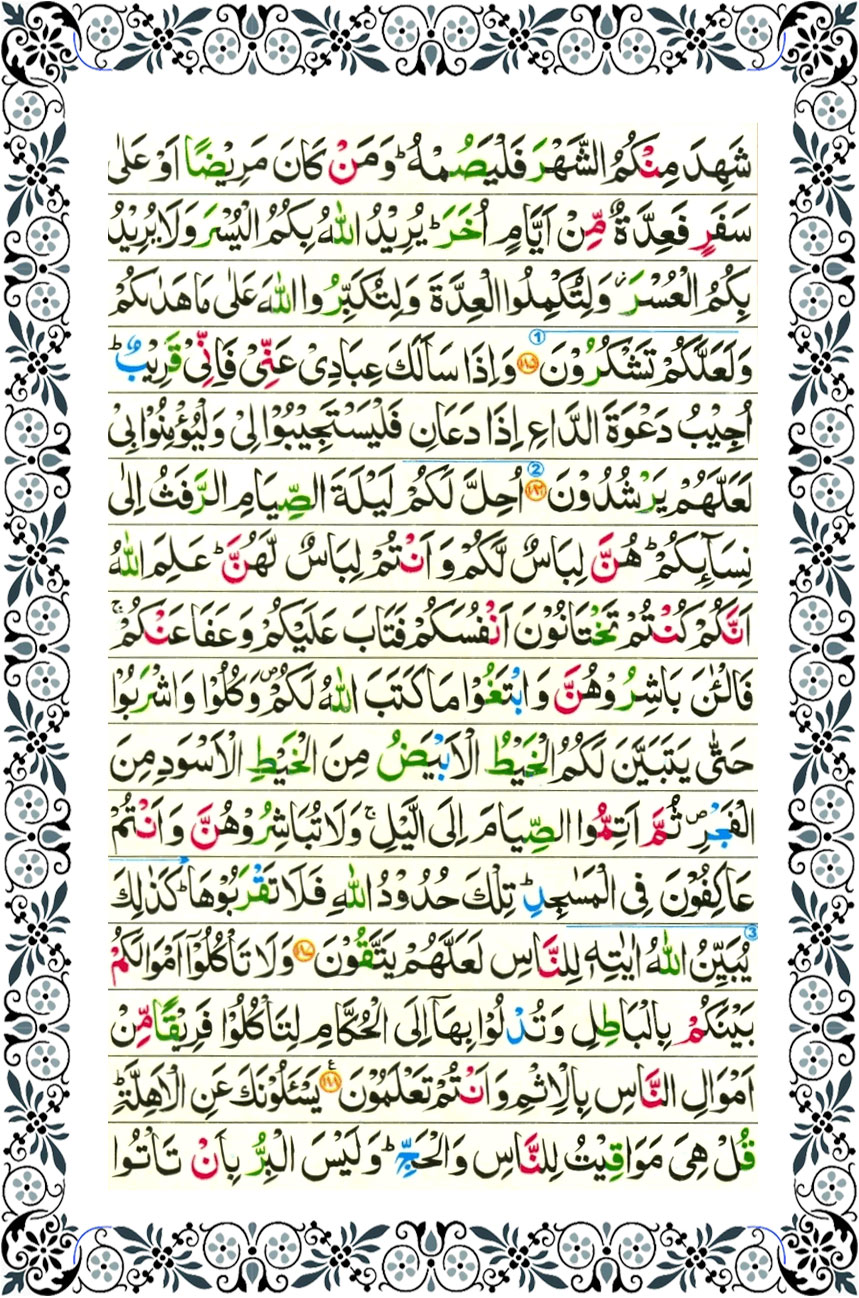 شَهِدَ مِنْكُمُ الشَّهْرَ فَلْيَصُمْهُ ؕ وَمَنْ كَانَ مَرِيْضًا اَوْ عَلٰى
سَفَرٍ فَعِدَّةٌ مِّنْ اَيَّامٍ اُخَرَ ؕ يُرِيْدُ اللّٰهُ بِكُمُ الْيُسْرَ وَلَا يُرِيْدُ
بِكُمُ الْعُسْرَ ۫ وَلِتُكْمِلُوا الْعِدَّةَ وَلِتُكَبِّرُوا اللّٰهَ عَلٰى مَا هَدٰىكُمْ
وَلَعَلَّكُمْ تَشْكُرُوْنَ ﴿۱۸۵﴾ وَاِذَا سَاَلَكَ عِبَادِىْ عَنِّىْ فَاِنِّىْ قَرِيْبٌ ؕ
اُجِيْبُ دَعْوَةَ الدَّاعِ اِذَا دَعَانِ فَلْيَسْتَجِيْبُوْا لِىْ وَلْيُؤْمِنُوْا بِىْ
لَعَلَّهُمْ يَرْشُدُوْنَ ﴿۱۸۶﴾ اُحِلَّ لَكُمْ لَيْلَةَ الصِّيَامِ الرَّفَثُ اِلٰى
نِسَآئِكُمْ ؕ هُنَّ لِبَاسٌ لَّكُمْ وَاَنْتُمْ لِبَاسٌ لَّهُنَّ ؕ عَلِمَ اللّٰهُ
اَنَّكُمْ كُنْتُمْ تَخْتَانُوْنَ اَنْفُسَكُمْ فَتَابَ عَلَيْكُمْ وَعَفَا عَنْكُمْ ۚ
فَالْـٰٔنَ بَاشِرُوْهُنَّ وَابْتَغُوْا مَا كَتَبَ اللّٰهُ لَكُمْ ۪ وَكُلُوْا وَاشْرَبُوْا
حَتّٰى يَتَبَيَّنَ لَكُمُ الْخَيْطُ الْاَبْيَضُ مِنَ الْخَيْطِ الْاَسْوَدِ مِنَ
الْفَجْرِ ۪ ثُمَّ اَتِمُّوا الصِّيَامَ اِلَى الَّيْلِ ۚ وَلَا تُبَاشِرُوْهُنَّ وَاَنْتُمْ
عَاكِفُوْنَ فِى الْمَسٰجِدِ ؕ تِلْكَ حُدُوْدُ اللّٰهِ فَلَا تَقْرَبُوْهَا ؕ كَذٰلِكَ
يُبَيِّنُ اللّٰهُ اٰيٰتِهٖ لِلنَّاسِ لَعَلَّهُمْ يَتَّقُوْنَ ﴿۱۸۷﴾ وَلَا تَاْكُلُوْٓا اَمْوَالَكُمْ
بَيْنَكُمْ بِالْبَاطِلِ وَتُدْلُوْا بِهَآ اِلَى الْحُكَّامِ لِتَاْكُلُوْا فَرِيْقًا مِّنْ
اَمْوَالِ النَّاسِ بِالْاِثْمِ وَاَنْتُمْ تَعْلَمُوْنَ ﴿۱۸۸﴾ يَسْـَٔلُوْنَكَ عَنِ الْاَهِلَّةِ ؕ
قُلْ هِىَ مَوَاقِيْتُ لِلنَّاسِ وَالْحَجِّ ؕ وَلَيْسَ الْبِرُّ بِاَنْ تَاْتُوا